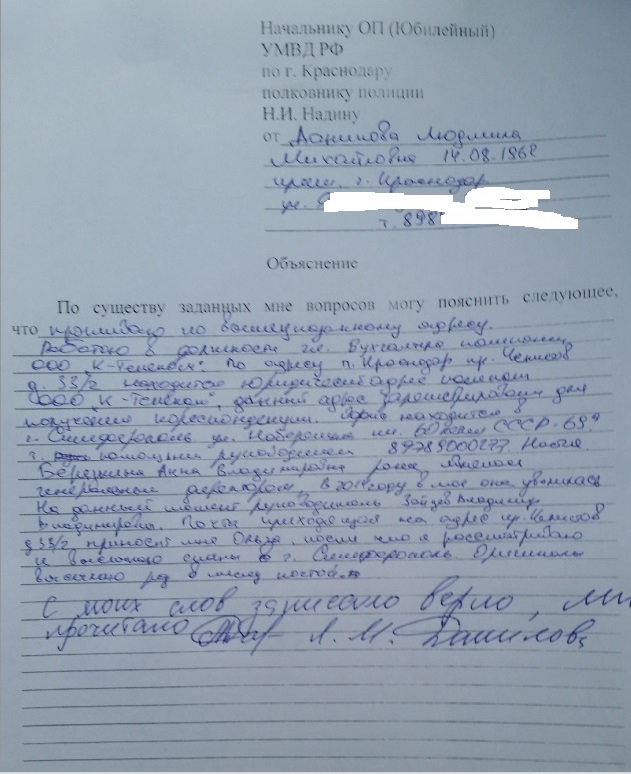 Начальнику ОП (Юбилейный)
УМВД РФ
по г. Краснодару
полковнику полиции
Н.И. Надину
от Данилова Людмила
Михайловна 14.08.1968
прож. г. Краснодар
ул.
т. 898
Объяснение
По существу заданных мне вопросов могу пояснить следующее,
что проживаю по вышеуказанному адресу.
Работаю в должности гл. Бухгалтера компании
ООО "К-Телеком". По адресу г. Краснодар пр. Чекистов
д. 33/2 находится юридический адрес компании
ООО "К-Телеком", данный адрес зарегистрирован для
получения кореспонденции. Офис находится в
г. Симферополь ул. Набережная им. 60 летия СССР-69А
т. помощник руководителя 89789000277 Настя.
Березкина Анна Владимировна ранее являлась
генеральным директором, в 2019 году в мае она уволилась
На данный момент руководитель Зайцев Владимир
Владимирович. Почта приходящая на адрес пр. Чекистов
д 33/2 приносит мне Ольга, после чего я рассматриваю
и высылаю сканы в г. Симферополь. Оригиналы
высылаю раз в месяц почтой.
С моих слов записано верно,
прочитано Л. М. Данилова